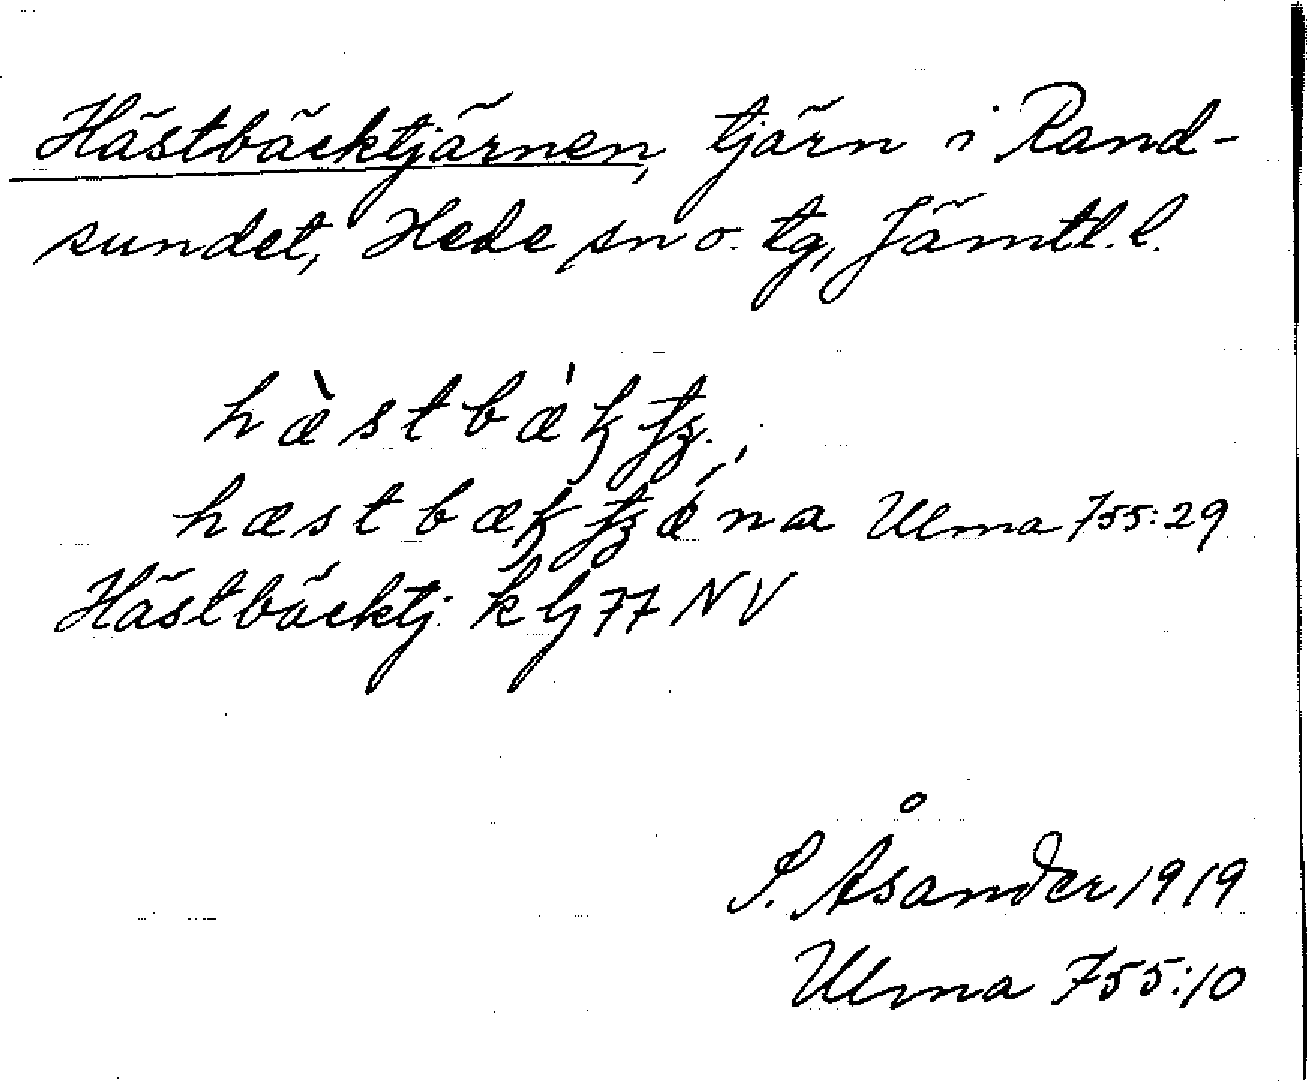 Hästbäcktjärnen, tjärn i Rand-
sundet, Hede sn o. tg, Jämtl. l.
hæ̀stbæ̍
hæstbæ
Ulma 755:29
Hästbäcktj. k bj 77 NV
S. Åsander 1919
Ulma 755:10